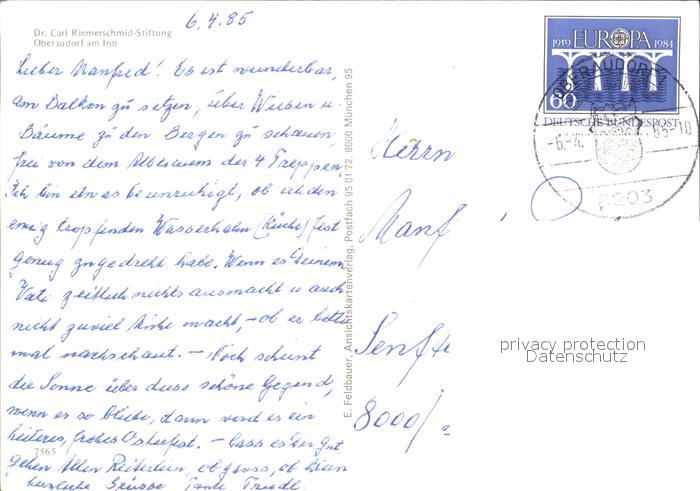 6.4.85
Dr. Carl Riemerschmid-Stiftung
Oberaudorf am Inn
Lieber Manfred! Es ist wunderbar,
am Balkon zu setzen, über Wiesen u.
Bäume zu den Bergen zu schauen,
frei von dem der 4 Treppen.
Ich bin etwas beunruhigt, ob ich den
ewig tropfenden Wasserhahn (Küche) fest
genug zugedreht habe. Wenn es Deinem
Vati zeitlich nichts ausmacht u. auch
nicht zuviel macht, - ob er bitte
mal nachschaut. - Noch scheint
die Sonne über diese schöne Gegend,
wenn es so bliebe, dann wird es ein
heiteres, frohes Osterfest. - Lass es Dir gut
7565
gehen. Allen ob gross, ob klein
herzliche Grüsse Tante Trudl.
E. Feldbauer, Ansichtskartenverlag, Postfach 95 01 72, 8000 München 95
1959 EUROPA 1984
60
DEUTSCHE BUNDESPOST
OBERAUDORF
-6.-4. 85-10
8203
Herrn
Manf
Senft
8000/
privacy protection
Datenschutz